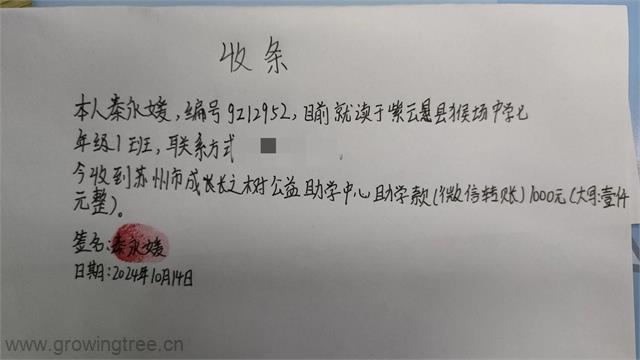 收条
本人秦永媛，编号9212952，目前就读于紫云县猴场中学七
年级1班，联系方式
今收到苏州市成长之树公益助学中心助学款(微信转账)1000元(大写:壹仟
元整)。
签名:秦永媛
日期:2024年10月14日
www.growingtree.cn